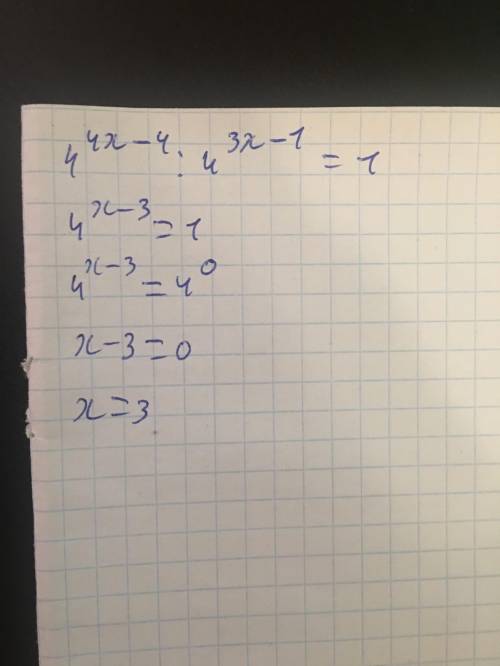 4^{4x-4} : 4^{3x-1} = 1
4^{x-3} = 1
4^{x-3} = 4^0
x-3=0
x=3